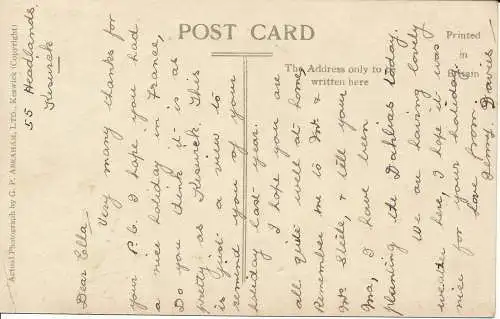 POST CARD
Printed
in
Britain
The Address only to
written here
Actual Photograph by G. P. Abraham, Ltd., Keswick (Copyright)
55 Headlands,
Keswick
Dear Ella
Very many thanks for
your P.C. I hope you had
a nice holiday in France,
Do you think it is as
pretty as Keswick. This
is just a view to
remind you of your
holiday last year.
I hope you are
all quite well at home,
Remember me to Mr. &
Mrs Sleits, & tell your
Ma, I have been
planting the Dahlias today.
We are having lovely
weather here, I hope it was
nice for your holiday.
Love from
Jenny Davies